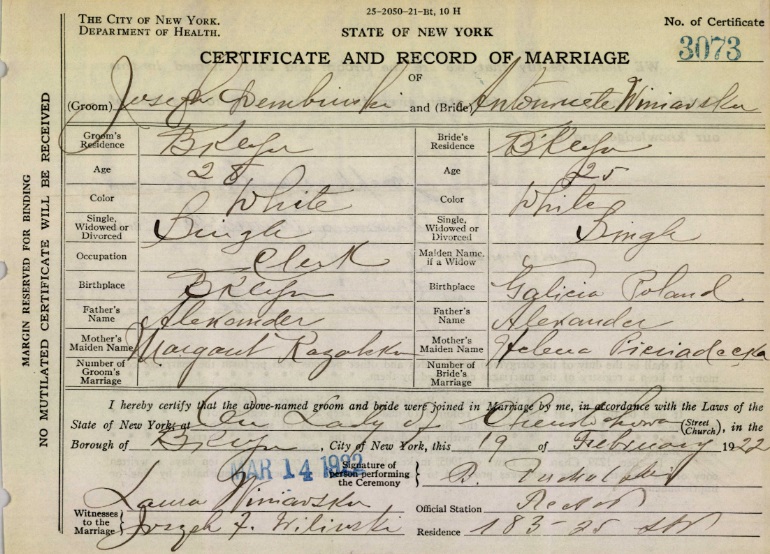 25-2050-21-Bt, 10 H
THE CITY OF NEW YORK.
DEPARTMENT OF HEALTH.
STATE OF NEW YORK
No. of Certificate
3073
CERTIFICATE AND RECORD OF MARRIAGE
OF
(Groom) Joseph Dembinski and (Bride) Antoinete Winiavska
Groom's Residence B'Klyn Bride's Residence B'Klyn
Age 28 Age 25
Color White Color White
Single, Widowed or Divorced Single Single, Widowed or Divorced Single
Occupation Clerk Maiden Name, if a Widow
Birthplace B'Klyn Birthplace Galicia Poland
Father's Name Alexander Father's Name Alexander
Mother's Maiden Name Margaret Mother's Maiden Name Helena
Number of Groom's Marriage Number of Bride's Marriage
I hereby certify that the above-named groom and bride were joined in Marriage by me, in accordance with the Laws of the
State of New York, at Our Lady of (Street Church), in the
Borough of B'Klyn, City of New York, this 19 of February 1922
MAR 14 1922
Signature of person performing the Ceremony B.
Witnesses to the Marriage Laura Winiavska
Joseph F. Wilinski
Official Station Rector
Residence 183-25 St
MARGIN RESERVED FOR BINDING
NO MUTILATED CERTIFICATE WILL BE RECEIVED